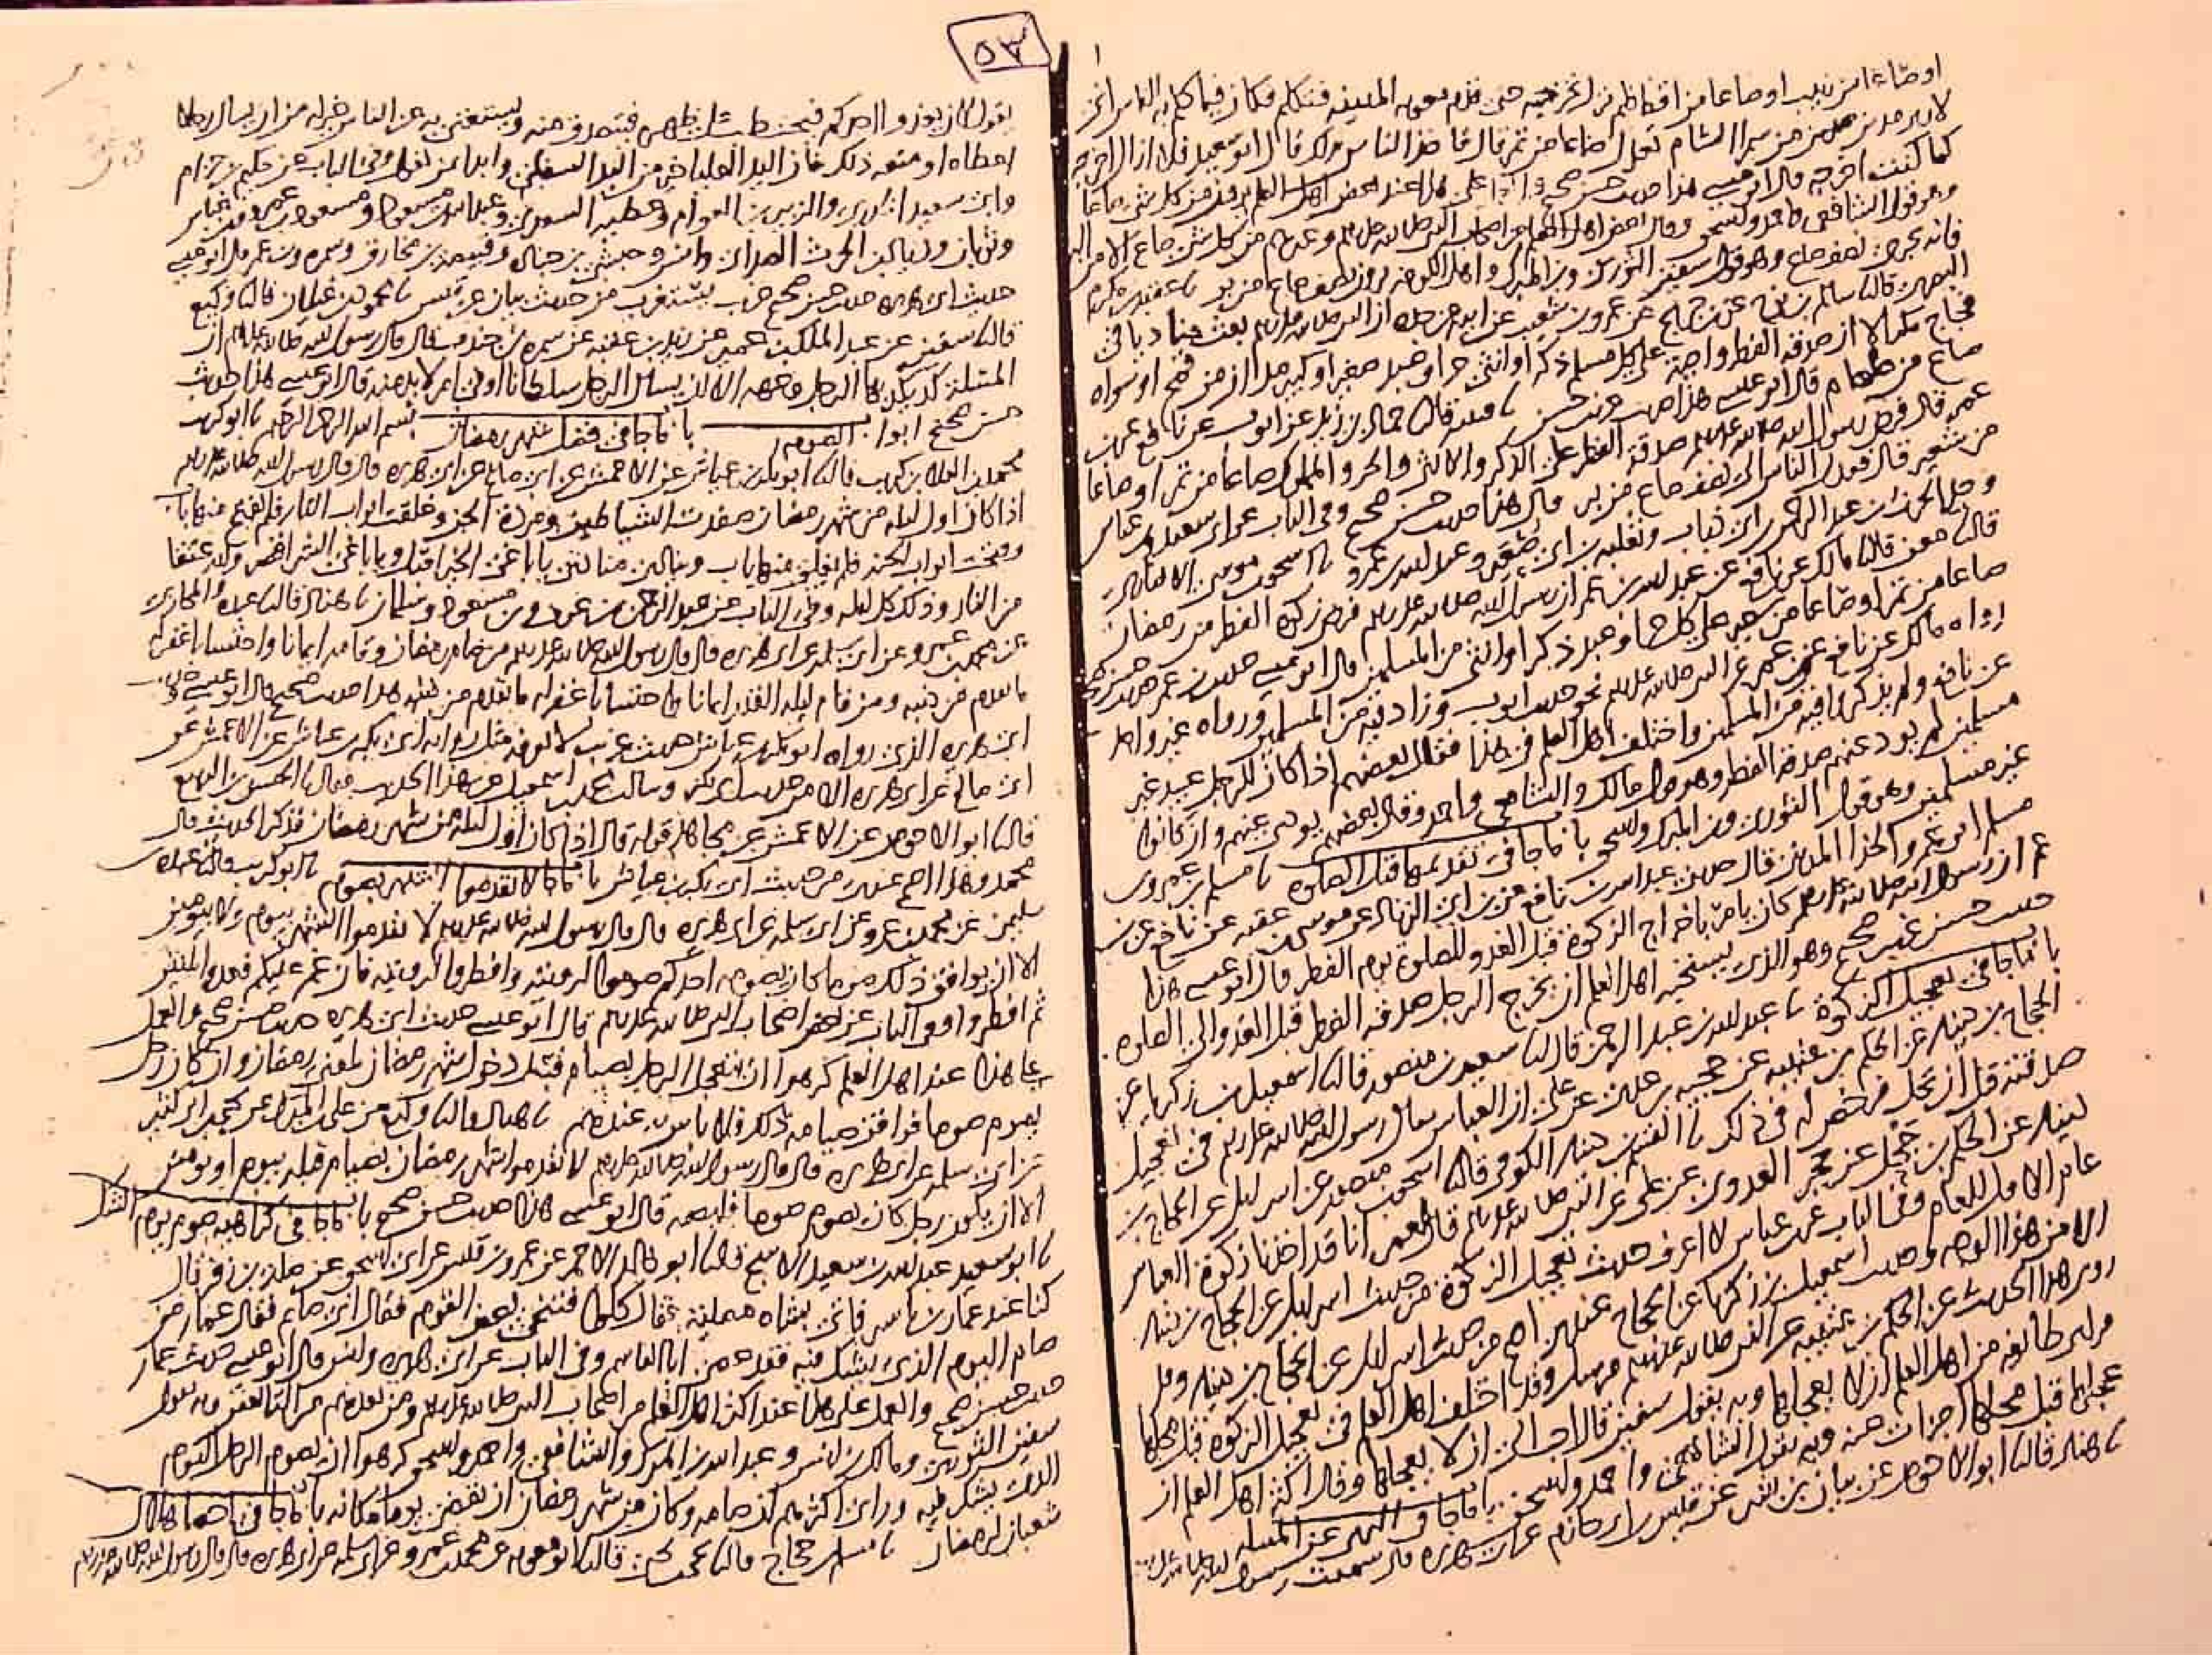 ٥٣
او صاعا من زبيب او صاعا من اقط فلم نزل نخرجه حتى قدم معويه المدينه فتكلم فكان فيما كلم به الناس انى
لارى مدين من سمرا الشام تعدل صاعا من تمر قال فاخذ الناس بذلك قال ابو سعيد فلا ازال اخرجه
كما كنت اخرجه قال ابو عيسى هذا حديث حسن صحيح والعمل على هذا عند بعض اهل العلم يرون من كل شى صاعا
وهو قول الشافعى واحمد واسحق وقال بعض اهل العلم من اصحاب النبى صلى الله عليه وسلم وغيرهم من كل شى صاع الا من البر
فانه يجزى نصف صاع وهو قول سفين الثورى وبن المبرك واهل الكوفه يرون نصف صاع من بر نا عقبه بن مكرم
البصرى قالنا سالم بن نوح عن بن جريج عن عمرو بن شعيب عن ابيه عن جده ان النبى صلى الله عليه وسلم بعث مناديا فى
فجاج مكه الا ان صدقه الفطر واجبة على كل مسلم ذكر او انثى حر او عبد صغير او كبير مدان من قمح او سواه
صاع من طعام قال ابو عيسى هذا حديث غريب حسن نا قتيبه قالنا حماد بن زيد عن ايوب عن نافع عن بن
عمر قال فرض رسول الله صلى الله عليه وسلم صدقة الفطر على الذكر والانثى والحر والمملوك صاعا من تمر او صاعا
من شعير قال فعدل الناس الى نصف صاع من بر قال هذا حديث حسن صحيح وفى الباب عن ابى سعيد وبن عباس
وجد الحرث بن عبد الرحمن بن ابى ذباب وثعلبه بن ابى صعير وعبد الله بن عمرو نا اسحق بن موسى الانصارى
قالنا معن قالنا مالك عن نافع عن عبد الله بن عمر ان رسول الله صلى الله عليه وسلم فرض زكوة الفطر من رمضان
صاعا من تمر او صاعا من شعير على كل حر او عبد ذكر او انثى من المسلمين قال ابو عيسى حديث بن عمر حديث حسن صحيح
رواه مالك عن نافع عن بن عمر عن النبى صلى الله عليه وسلم نحو حديث ايوب وزاد فيه من المسلمين ورواه غير واحد
عن نافع ولم يذكروا فيه من المسلمين واختلف اهل العلم فى هذا فقال بعضهم اذا كان للرجل عبيد غير
مسلمين لم يود عنهم صدقة الفطر وهو قول مالك والشافعى واحمد وقال بعضهم يودى عنهم وان كانوا
غير مسلمين وهو قول الثورى وبن المبرك واسحق باب ما جا فى تقديمها قبل الصلوه نا مسلم بن عمرو بن
مسلم ابو عمرو الحذا المدنى قال حدثنى عبد الله بن نافع عن بن ابى الزناد عن موسى بن عقبه عن نافع عن بن
عمر ان رسول الله صلى الله عليه وسلم كان يامر باخراج الزكوة قبل الغدو للصلوة يوم الفطر قال ابو عيسى هذا
حديث حسن غريب صحيح وهو الذى يستحبه اهل العلم ان يخرج الرجل صدقة الفطر قبل الغدو الى الصلوه
باب ما جا فى تعجيل الزكوة نا عبد الله بن عبد الرحمن قال انا سعيد بن منصور قالنا اسمعيل بن زكريا عن
الحجاج بن دينار عن الحكم بن عتيبه عن حجيه بن عدى عن على ان العباس سال رسول الله صلى الله عليه وسلم فى تعجيل
صدقته قبل ان تحل فرخص له فى ذلك نا القسم بن دينار الكوفى قالنا اسحق بن منصور عن اسرائيل عن الحجاج بن
دينار عن الحكم بن جحل عن حجر العدوى عن على عن النبى صلى الله عليه وسلم قال لعمر انا قد اخذنا زكوة العباس
عام الاول للعام وفى الباب عن بن عباس لا اعرف حديث تعجيل الزكوة من حديث اسرائيل عن الحجاج بن دينار
الا من هذا الوجه وحديث اسمعيل بن زكريا عن الحجاج عندى اصح من حديث اسرائيل عن الحجاج بن دينار وقد
روى هذا الحديث عن الحكم بن عتيبه عن النبى صلى الله عليه وسلم مرسل وقد اختلف اهل العلم فى تعجيل الزكوة قبل محلها
فراى طائفه من اهل العلم ان لا يعجلها وبه يقول سفين قال احب الى ان لا يعجلها وقال اكثر اهل العلم ان
عجلها قبل محلها اجزات عنه وبه يقول الشافعى واحمد واسحق باب ما جا فى النهى عن المسله
نا هناد قالنا ابو الاحوص عن بيان بن بشر عن قيس بن ابى حازم عن ابى هريره قال سمعت رسول الله صلى الله عليه وسلم
يقول لان يغدو احدكم فيحتطب على ظهره فيتصدق منه ويستغنى به عن الناس خير له من ان يسال رجلا
اعطاه او منعه ذلك فان اليد العليا خير من اليد السفلى وابدا بمن تعول وفى الباب عن حكيم بن حزام
وابى سعيد الخدرى والزبير بن العوام وعطيه السعدى وعبد الله بن مسعود ومسعود بن عمرو وبن عباس
وثوبان وزياد بن الحرث الصدائى وانس وحبشى بن جناده وقبيصه بن مخارق وسمره وبن عمر قال ابو عيسى
حديث ابى هريره حديث حسن صحيح غريب يستغرب من حديث بيان عن قيس نا محمود بن غيلان قالنا وكيع
قالنا سفين عن عبد الملك بن عمير عن زيد بن عقبه عن سمره بن جندب قال قال رسول الله صلى الله عليه وسلم ان
المسئلة كد يكد بها الرجل وجهه الا ان يسال الرجل سلطانا او فى امر لا بد منه قال ابو عيسى هذا حديث
حسن صحيح ابواب الصوم باب ما جا فى فضل شهر رمضان بسم الله الرحمن الرحيم نا ابو كريب
محمد بن العلا بن كريب قالنا ابو بكر بن عياش عن الاعمش عن ابى صالح عن ابى هريره قال قال رسول الله صلى الله عليه وسلم
اذا كان اول ليله من شهر رمضان صفدت الشياطين ومردة الجن وغلقت ابواب النار فلم يفتح منها باب
وفتحت ابواب الجنه فلم يغلق منها باب وينادى مناد يا باغى الخير اقبل ويا باغى الشر اقصر ولله عتقا
من النار وذلك كل ليله وفى الباب عن عبد الرحمن بن عوف وبن مسعود وسلمان نا هناد قالنا عبده والمحاربى
عن محمد بن عمرو عن ابى سلمه عن ابى هريره قال قال رسول الله صلى الله عليه وسلم من صام رمضان وقامه ايمانا واحتسابا غفر له
ما تقدم من ذنبه ومن قام ليله القدر ايمانا واحتسابا غفر له ما تقدم من ذنبه هذا حديث صحيح قال ابو عيسى حديث
ابى هريره الذى رواه ابو بكر بن عياش حديث غريب لا نعرفه مثل روايه ابى بكر بن عياش عن الاعمش عن
ابى صالح عن ابى هريره الا من حديث ابى بكر وسالت محمد بن اسمعيل عن هذا الحديث فقال نا الحسن بن الربيع
قالنا ابو الاحوص عن الاعمش عن مجاهد قوله قال اذا كان اول ليله من شهر رمضان فذكر الحديث قال
محمد وهذا اصح عندى من حديث ابى بكر بن عياش باب ما جا لا تقدموا الشهر بصوم نا ابو كريب قالنا عبده بن
سليمن عن محمد بن عمرو عن ابى سلمه عن ابى هريره قال قال رسول الله صلى الله عليه وسلم لا تقدموا الشهر بيوم ولا بيومين
الا ان يوافق ذلك صوما كان يصومه احدكم صوموا لرويته وافطروا لرويته فان غم عليكم فعدوا ثلثين
ثم افطروا وفى الباب عن بعض اصحاب النبى صلى الله عليه وسلم قال ابو عيسى حديث ابى هريره حديث حسن صحيح والعمل
على هذا عند اهل العلم كرهوا ان يتعجل الرجل بصيام قبل دخول شهر رمضان لمعنى رمضان وان كان رجل
يصوم صوما فوافق صيامه ذلك فلا باس به عندهم نا هناد قالنا وكيع عن على بن المبرك عن يحيى بن ابى كثير
عن ابى سلمه عن ابى هريره قال قال رسول الله صلى الله عليه وسلم لا تقدموا شهر رمضان بصيام قبله بيوم او يومين
الا ان يكون رجل كان يصوم صوما فليصمه قال ابو عيسى هذا حديث حسن صحيح باب ما جا فى كراهيه صوم يوم الشك
نا ابو سعيد عبد الله بن سعيد الاشج قالنا ابو خالد الاحمر عن عمرو بن قيس عن ابى اسحق عن صله بن زفر قال
كنا عند عمار بن ياسر فاتى بشاه مصليه فقال كلوا فتنحى بعض القوم فقال انى صايم فقال عمار من
صام اليوم الذى يشك فيه فقد عصى ابا القاسم وفى الباب عن ابى هريره وانس قال ابو عيسى حديث عمار
حديث حسن صحيح والعمل على هذا عند اكثر اهل العلم من اصحاب النبى صلى الله عليه وسلم ومن بعدهم من التابعين وبه يقول
سفين الثورى ومالك بن انس وعبد الله بن المبرك والشافعى واحمد واسحق كرهوا ان يصوم الرجل اليوم
الذى يشك فيه وراى اكثرهم ان صامه وكان من شهر رمضان ان يقضى يوما مكانه باب ما جا فى احصا هلال
شعبان لرمضان نا مسلم بن حجاج قالنا يحيى بن يحيى قالنا ابو معويه عن محمد بن عمرو عن ابى سلمه عن ابى هريره قال قال رسول الله صلى الله عليه وسلم